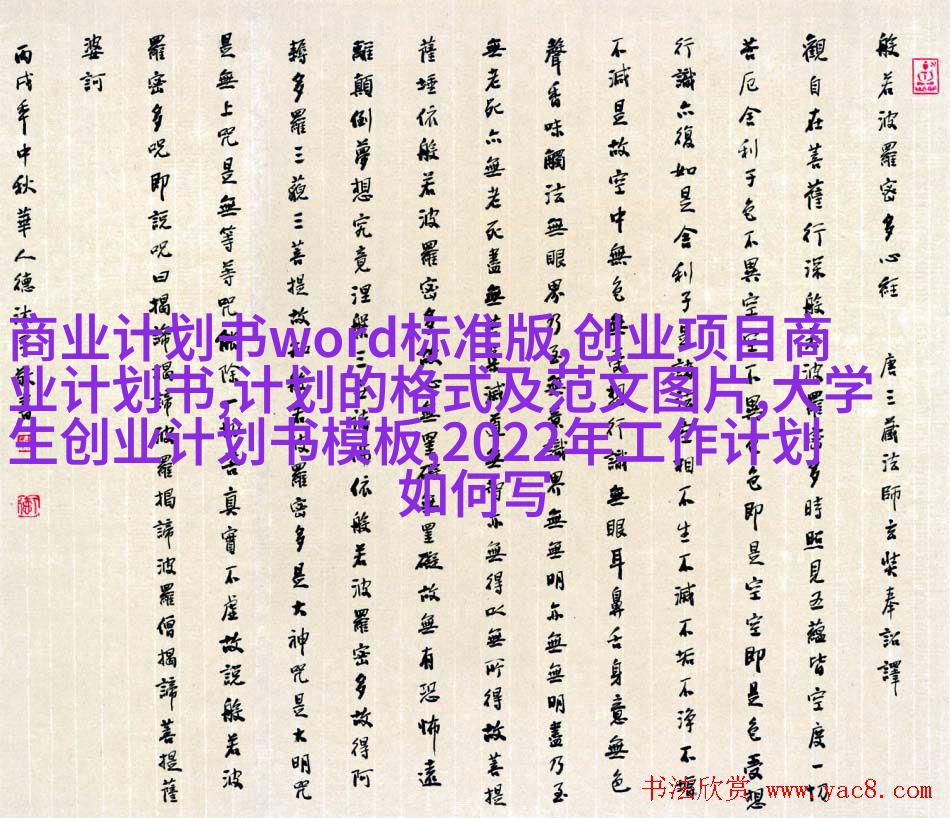 般若波羅密多心經 唐三藏法師玄奘奉詔譯
觀自在菩薩行深般若波羅密多時照見五蘊皆空度一切
苦厄舍利子色不異空空不異色色即是空空即是色受想
行識亦復如是舍利子是諸法空相不生不滅不垢不淨不增
不減是故空中無色無受想行識無眼耳鼻舌身意無色
聲香味觸法無眼界乃至無意識界無無明亦無無明盡乃至
無老死亦無老死盡無苦集滅道無智亦無得以無所得故菩提
薩埵依般若波羅密多故心無罣礙無罣礙故無有恐怖遠
離顛倒夢想究竟涅槃三世諸佛依般若波羅密多故得阿
耨多羅三藐三菩提故知般若波羅密多是大神咒是大明咒
是無上咒是無等等咒能除一切苦真實不虛故説般若波
羅密多咒即説咒曰揭諦揭諦波羅揭諦波羅僧揭諦菩提薩
婆訶
丙戌年中秋華人德沐手敬書
商业计划书word标准版,创业项目商
业计划书,计划的格式及范文图片,大学
生创业计划书模板,2022年工作计划
如何写
书法欣赏 www.yac8.com